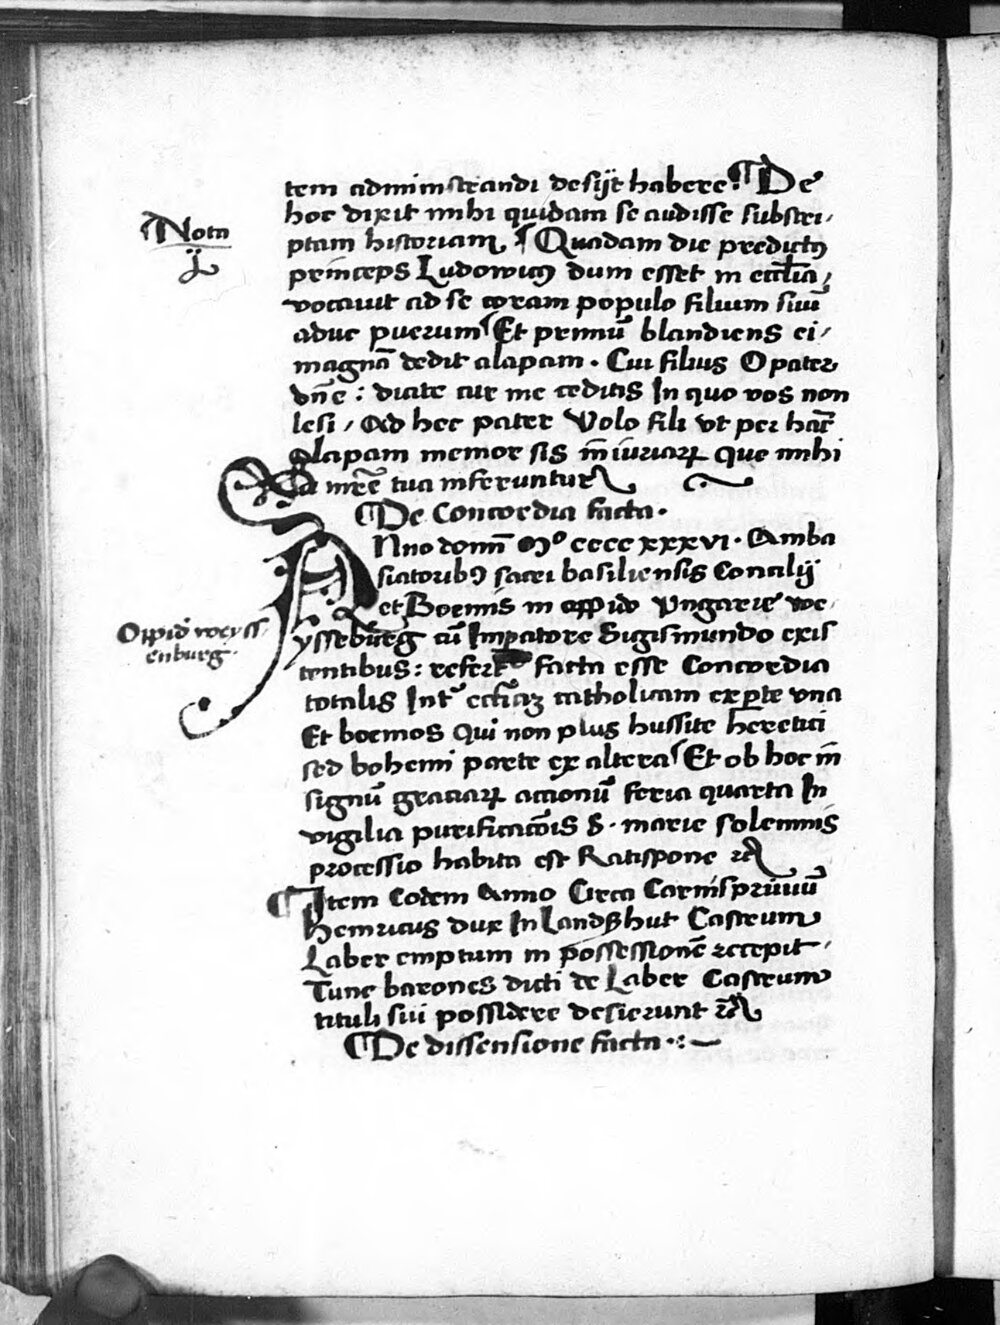 tem administrandi desijt habere ¶ De
hoc dixit mihi quidam se audisse subscri-
Nota
ptam historiam ¶ Quadam die predictꝰ
princeps Ludowicꝰ dum esset in eccl̄ia,
vocauit ad se coram populo filium suū
aduc puerum Et primū blandiens ei /
magnā dedit alapam · Cui filius O pater
dn̄e : dicite cur me ceditis In quo vos non
lesi / Ad hec pater Volo fili vt per hāc
alapam memor sis īniuriaꝝ que mihi
a mr̄e tua inferuntur
¶ De Concordia facta ·
Anno domī Mº cccc xxxvi · Amba
siatoribꝰ sacri basiliensis Concilij
et Boemis in oppido Vngarie we-
Oppid̄ weyss-
enburg ·
ysseburg cū Imperatore Sigismundo exis
tentibus : refert facta esse Concordia
totalis Int̄ eccl̄iaꝫ catholicam ex ꝑte vna
Et boemos Qui non plus hussite heretici
sed bohemi parte ex altera Et ob hoc in
signū graciaꝝ accionū feria quarta In
vigilia purificacōis S · marie solemnis
processio habita est Ratispone
¶ Item Eodem Anno Circa Carnispriuiū
Henricus dux In Landshut Castrum
Laber emptum in possessionē recepit ·
Tunc barones dicti de Laber Castrum
tituli sui possidere desierunt
¶ De dissensione facta ·